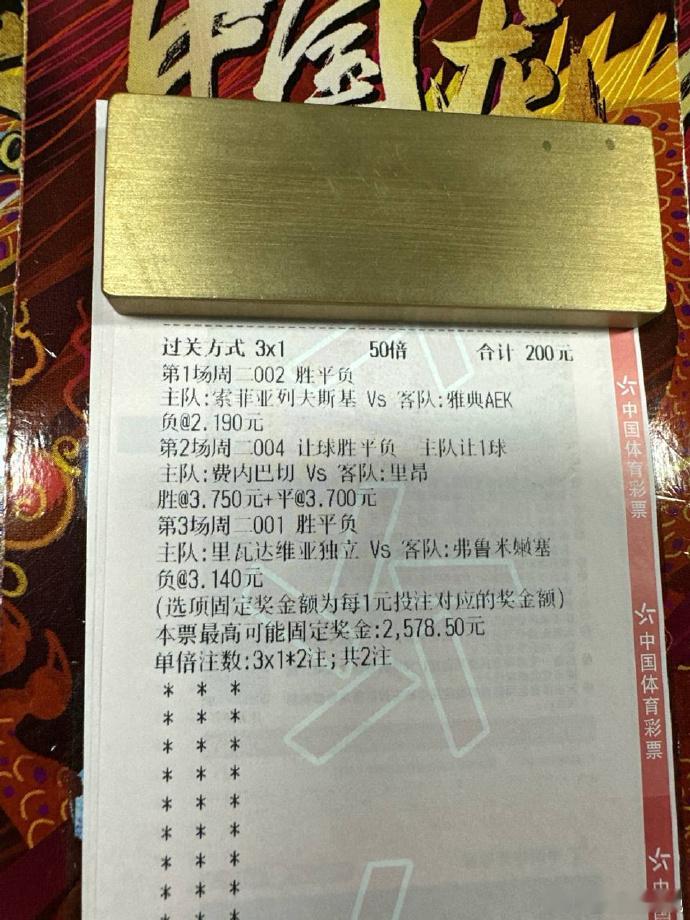 中国龙
过关方式 3x1 50倍 合计 200元
第1场周二002 胜平负
主队:索菲亚列夫斯基 Vs 客队:雅典AEK
负@2.190元
第2场周二004 让球胜平负 主队让1球
主队:费内巴切 Vs 客队:里昂
胜@3.750元+平@3.700元
第3场周二001 胜平负
主队:里瓦达维亚独立 Vs 客队:弗鲁米嫩塞
负@3.140元
(选项固定奖金额为每1元投注对应的奖金额)
本票最高可能固定奖金:2,578.50元
单倍注数:3x1*2注;共2注
* * *
* * *
* * *
* * *
* * *
* * *
* * *
* * *
* * *
中国体育彩票
中国体育彩票
中